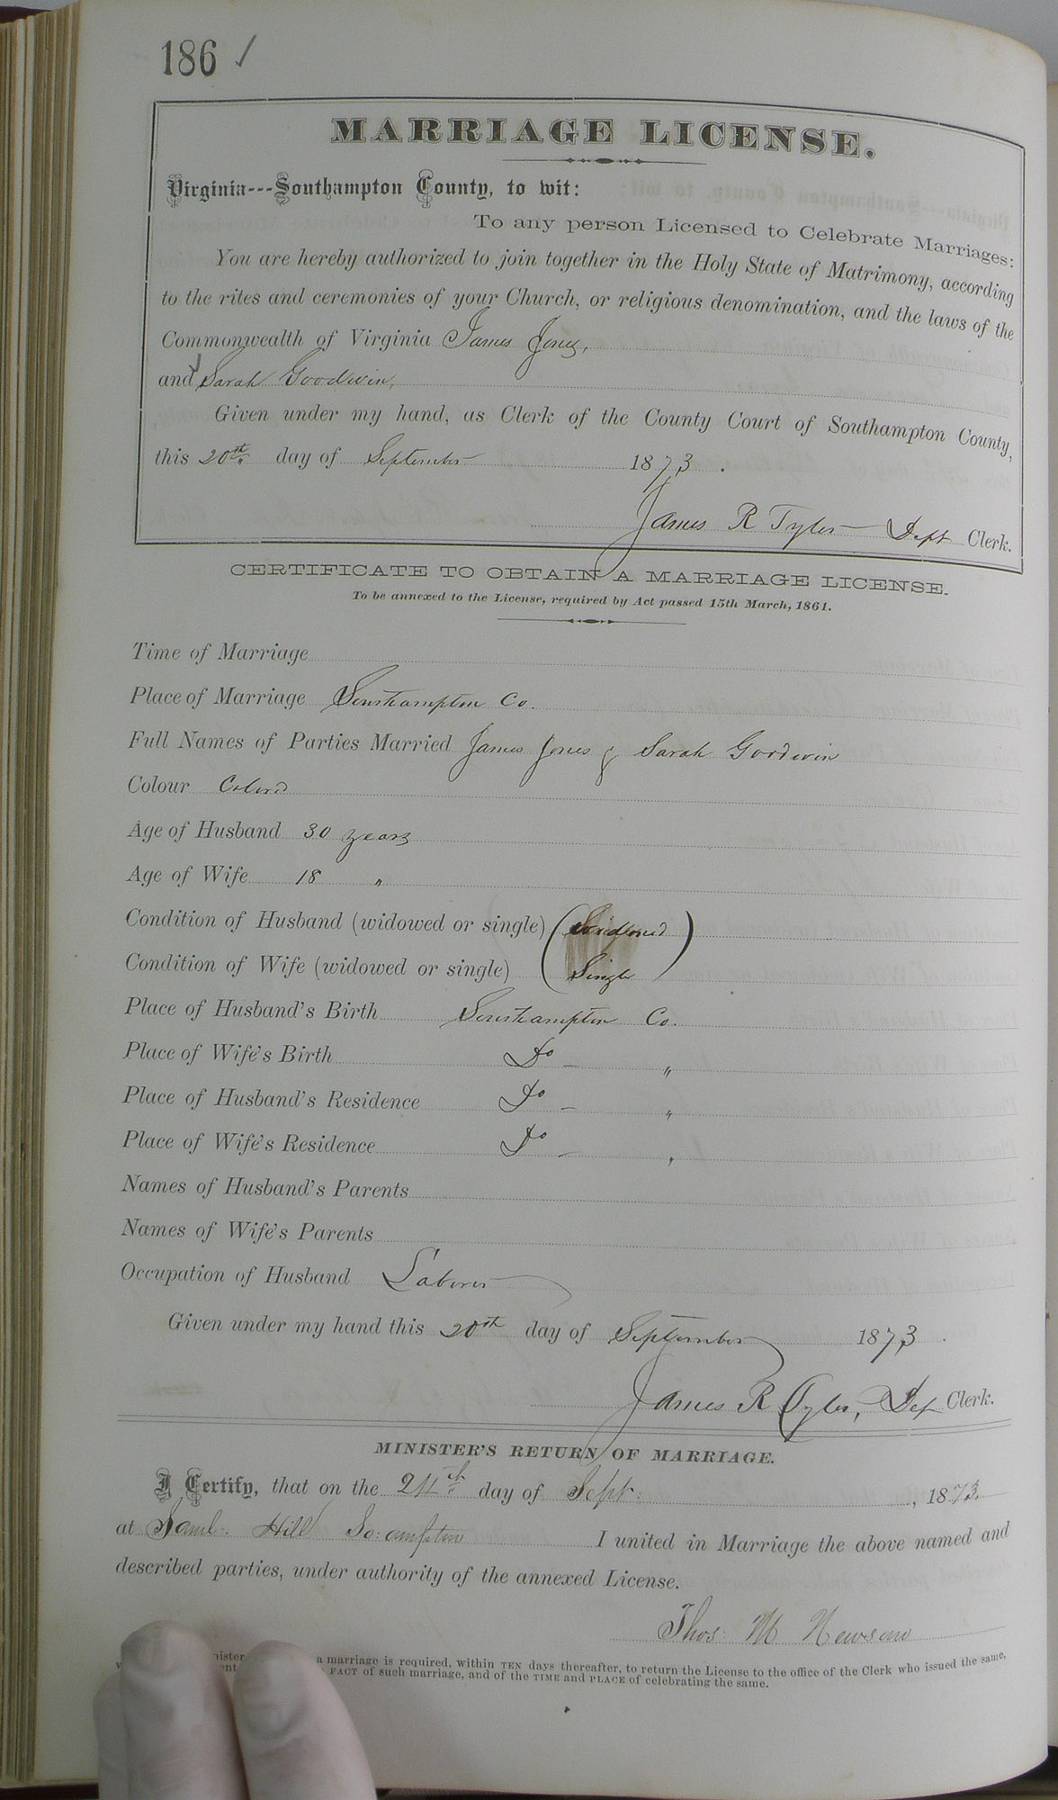 186 ✓
MARRIAGE LICENSE.
Virginia---Southampton County, to wit:
To any person Licensed to Celebrate Marriages:
You are hereby authorized to join together in the Holy State of Matrimony, according
to the rites and ceremonies of your Church, or religious denomination, and the laws of the
Commonwealth of Virginia James Jones,
and Sarah Goodwin,
Given under my hand, as Clerk of the County Court of Southampton County,
this 20th day of September 1873.
James R Tyler Dept Clerk.
CERTIFICATE TO OBTAIN A MARRIAGE LICENSE.
To be annexed to the License, required by Act passed 15th March, 1861.
Time of Marriage
Place of Marriage Southampton Co.
Full Names of Parties Married James Jones & Sarah Goodwin
Colour Colord
Age of Husband 30 years
Age of Wife 18 "
Condition of Husband (widowed or single) (Widowed)
Condition of Wife (widowed or single) (Single)
Place of Husband's Birth Southampton Co.
Place of Wife's Birth Do - "
Place of Husband's Residence Do - "
Place of Wife's Residence Do - "
Names of Husband's Parents
Names of Wife's Parents
Occupation of Husband Laborer
Given under my hand this 20th day of September 1873.
James R Tyler, Dep Clerk.
MINISTER'S RETURN OF MARRIAGE.
I Certify, that on the 24th day of Sept: , 1873.
at Saml: Hill So:ampton I united in Marriage the above named and
described parties, under authority of the annexed License.
Thos: M Newsom
a marriage is required, within TEN days thereafter, to return the License to the office of the Clerk who issued the same,
FACT of such marriage, and of the TIME and PLACE of celebrating the same.